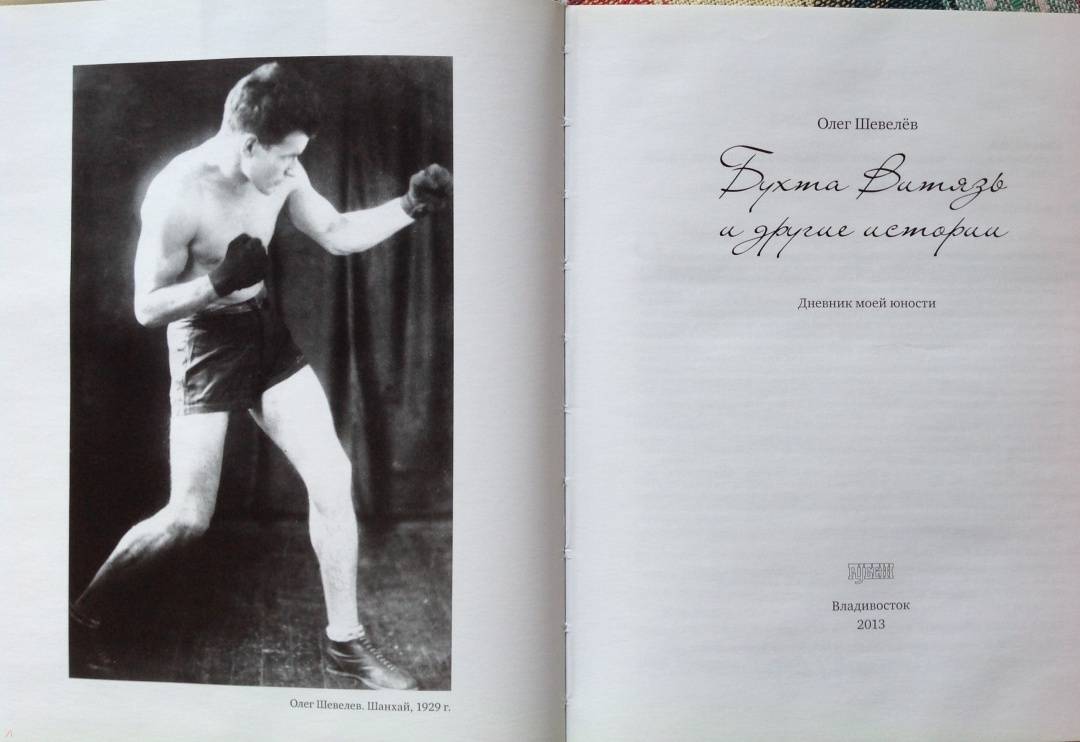 Олег Шевелев. Шанхай, 1929 г.
Олег Шевелёв
Бухта Витязь
и другие истории
Дневник моей юности
РУБЕЖ
Владивосток
2013